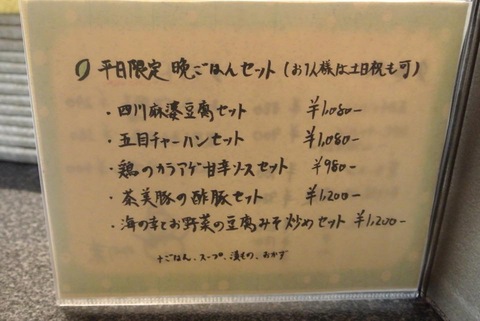 平日限定 晩ごはんセット (お1人様は土日祝も可)
・四川麻婆豆腐セット ¥1,080-
・五目チャーハンセット ¥1,080-
・鶏のカラアゲ甘辛ソースセット ¥980-
・茶美豚の酢豚セット ¥1,200-
・海の幸とお野菜の豆腐みそ炒めセット ¥1,200-
+ごはん、スープ、漬もの、おかず